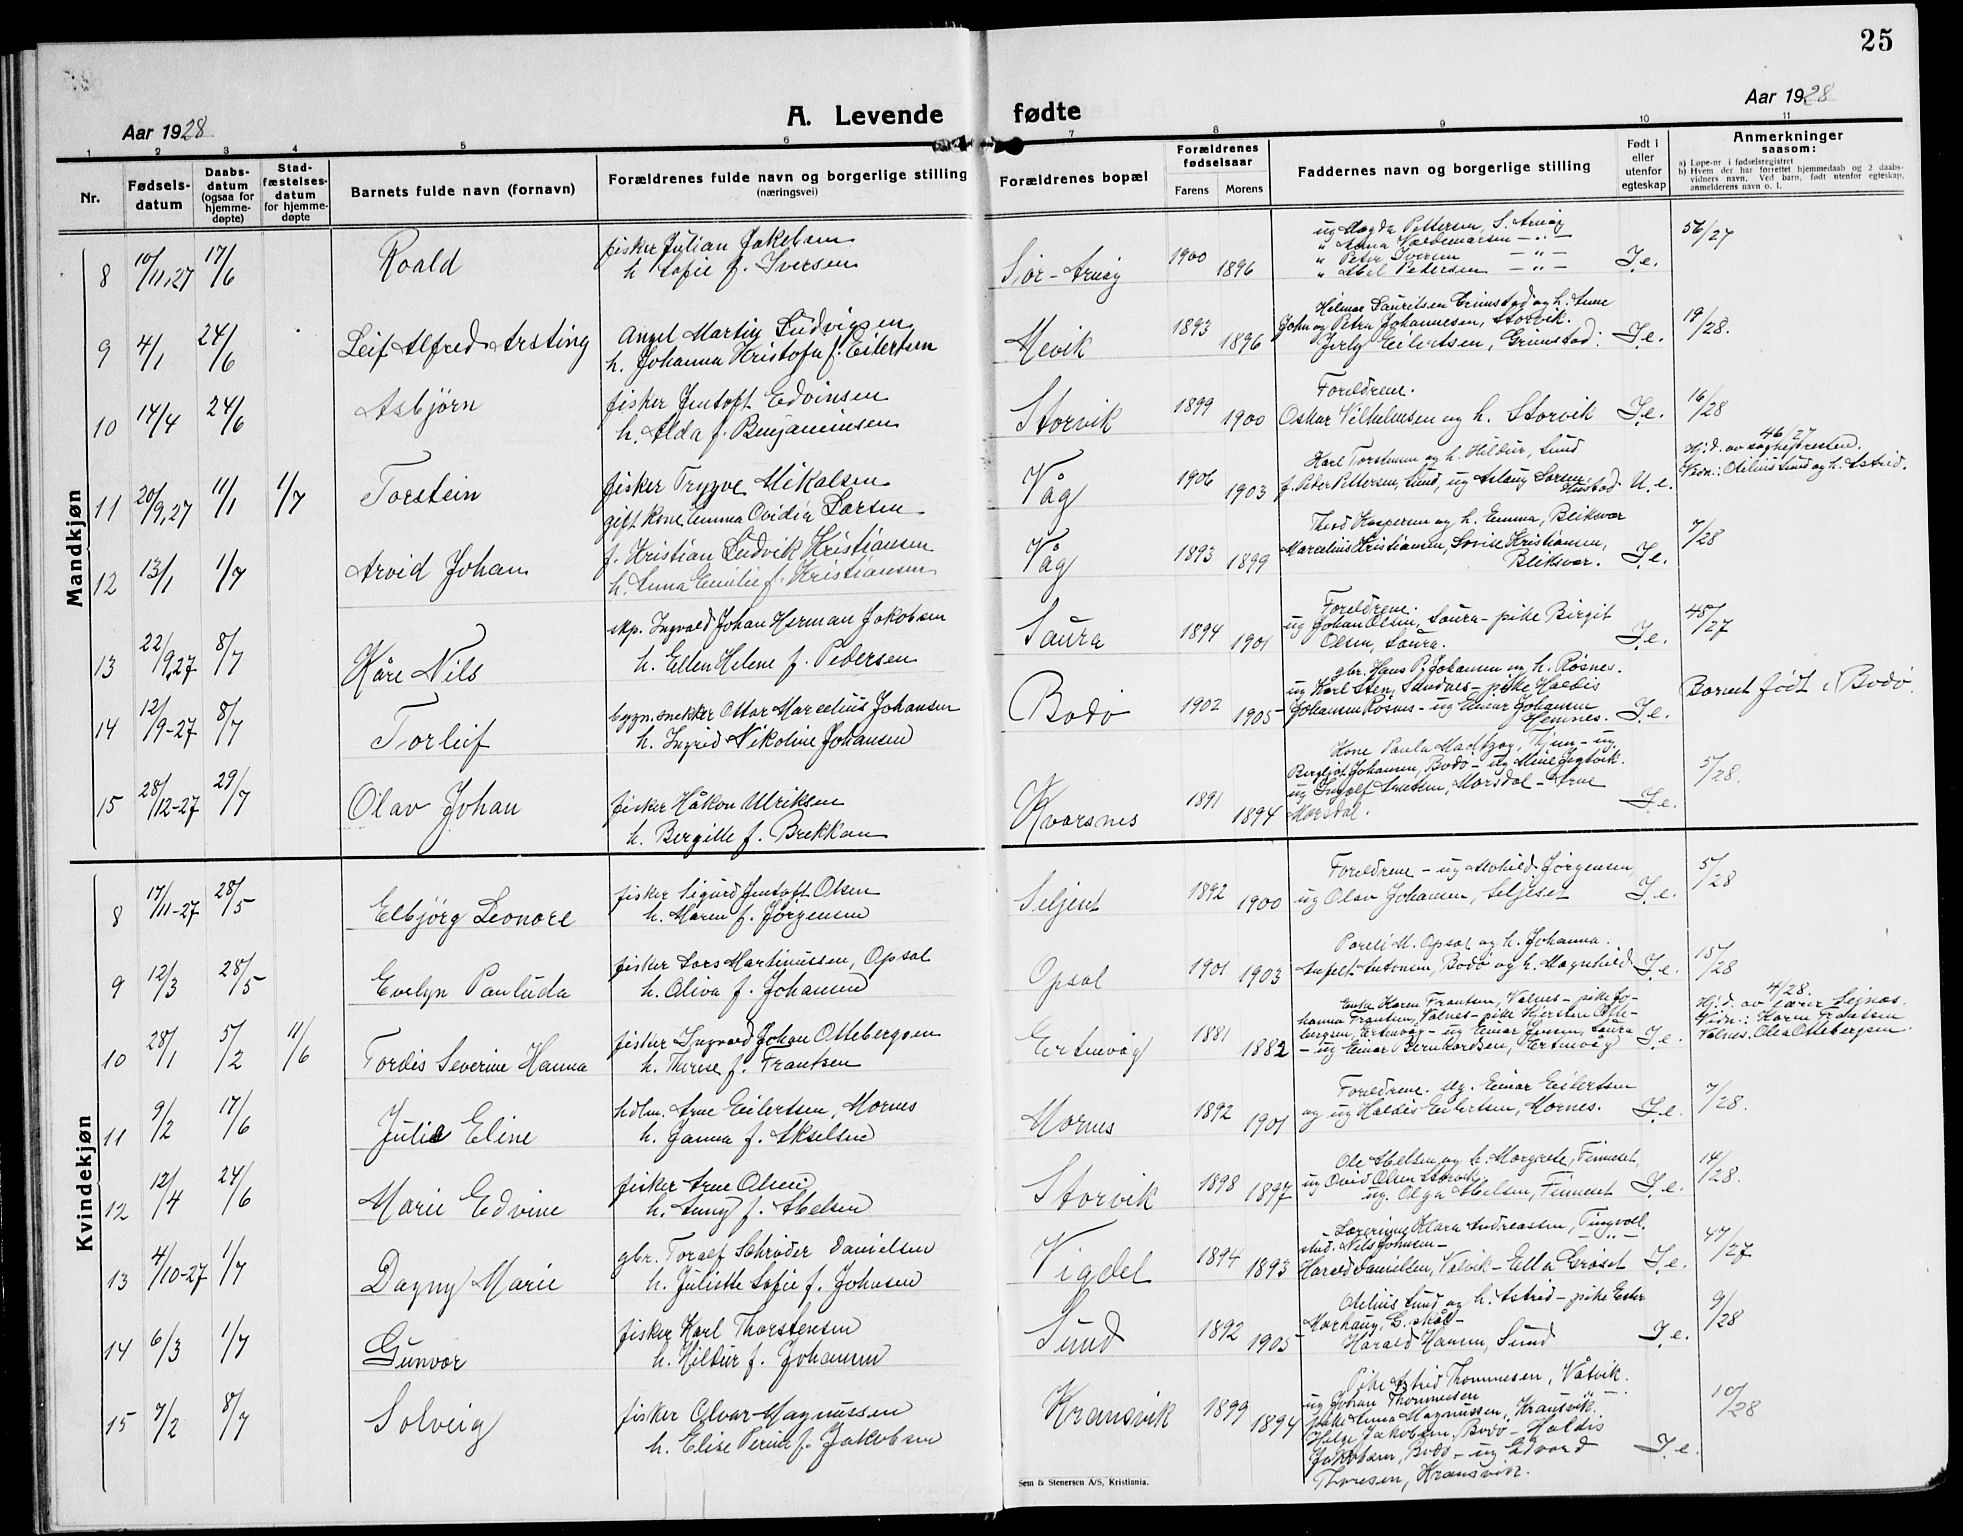 25
Aar 1928
A. Levende fødte
Aar 1928
1 2 3 4 5 6 7 8 9 10 11
Nr.
Fødsels-
datum
Daabs-
datum
(ogsaa for
hjemme-
døpte)
Stad-
fæstelses-
datum
for hjemme-
døpte
Barnets fulde navn (fornavn)
Forældrenes fulde navn og borgerlige stilling
(næringsvei)
Forældrenes bopæl
Forældrenes
fødselsaar
Farens Morens
Faddernes navn og borgerlige stilling
Født i
eller
utenfor
egteskap
Anmerkninger
saasom:
a) Løpe-nr i fødselsregistret
b) Hvem der har forrettet hjemmedaab og 2 daabs-
vidners navn. Ved barn, født utenfor egteskap,
anmelderens navn o. l.
Mandkjøn
8 10/11,27 17/6 Roald
fisker Julian Jakobsen
h. Sofie f. Iversen
Sør-Arnøy 1900 1896
ug Magda Pettersen, S. Arnøy
" Anna Valdemarsen - " -
" Petr Iversen - " -
" Abel Pedersen - " -
I.e. 56/27
9 4/1 24/6 Leif Alfred Arsting
Angel Martin Ludvigsen
h. Johanna Kristofa f. Eilertsen
Mevik 1893 1896
Hilmar Lauritsen Grimstad og h. Anne
John og Petra Johannesen, Storvik.
Jerly Eilertsen, Grimstad.
I.e. 19/28.
10 14/4 24/6 Asbjørn
fisker Jentoft Edvinsen
h. Alda f. Benjaminsen
Storvik 1899 1900
Foreldrene.
Oskar Vilhelmsen og h. Storvik
I.e. 16/28
11 20/9,27 11/1 1/7 Torstein
fisker Trygve Mikalsen
gift kone Emma Ovidia Larsen
Våg 1906 1903
Karl Torstensen og h. Hildur, Sund
f. Peter Pettersen, Sund, ug Aslaug Larsen,
Hustad.
U.e. 46/27
Hj.d. av sognepresten.
Vidn.: Otelius Sund og h. Astrid.
12 13/1 1/7 Arvid Johan
f. Kristian Ludvik Kristiansen
h. Anna Emilie f. Kristiansen
Våg 1893 1899
Theod Kaspersen og h. Emma, Bliksvær
Marcelius Kristiansen, Lovise Kristiansen,
Bliksvær.
I.e. 7/28
13 22/9,27 8/7 Kåre Nils
skp. Ingvald Johan Herman Jakobsen
h. Ellen Helene f. Pedersen
Saura 1894 1901
Foreldrene.
ug Johan Olsen, Saura - pike Birgit
Olsen, Saura.
I.e. 45/27
14 12/9-27 8/7 Torleif
bygn.snekker Ottar Marcelius Johansen
h. Ingrid Nikoline Johansen
Bodø 1902 1905
gbr. Hans P. Johansen og h. Røsnes.
ug Karl Sten, Sandnes - pike Haldis
Johansen Røsnes - ug Einar Johansen
Hemnes.
I.e. Barnet født i Bodø.
15 28/12-27 29/7 Olav Johan
fisker Håkon Ulriksen
h. Bergitte f. Brekkan
Kvarsnes 1891 1894
Kone Paula
Bergljot Johansen, Bodø - ug
ug Ingolf Arntsen, Morsdal - Arne
Morsdal.
I.e. 5/28.
Kvindekjøn
8 17/11-27 28/5 Elbjörg Leonore
fisker Sigurd Jentoft Olsen
h. Maren f. Jørgensen
Seljeset 1892 1900
Foreldrene - ug Mohild Jørgensen
ug Olav Johansen, Seljeset
I.e. 5/28
9 12/3 28/5 Evelyn Pauluda
fisker Lars Martinussen, Opsal
h. Oliva f. Johansen
Opsal 1901 1903
Pareli M. Opsal og h. Johanna.
Antonsen, Bodø og h. Magnhild
I.e. 15/28
10 28/1 5/2 11/6 Tordis Severine Hanna
fisker Ingvard Johan Ottebergsen
h. Therese f. Frantsen
Ertenvåg 1881 1882
Enke Karen Frantsen, Valnes - pike Jo-
hanna Frantsen, Valnes - pike Kjersten Otte-
bergsen, Ertenvåg - ug Einar Jensen, Saura
- ug Einar Bernhardsen, Ertenvåg
I.e. 4/28.
Hj.d. av lærer Seines.
Vidn.: Karen Frantsen
Valnes. Olea Ottebergsen.
11 9/2 17/6 Julie Eline
hdlm. Arne Eilertsen, Mornes
h. Janna f. Akselsen
Mornes 1892 1901
Foreldrene. ug. Einar Eilertsen
og ug Haldis Eilertsen, Mornes.
I.e. 7/28.
12 12/4 24/6 Marie Edvine
fisker Arne Olsen
h. Anny f. Abelsen
Storvik 1898 1897
Ole Abelsen og h. Margrete, Finneset,
ug Ovid Olsen Storvik
ug. Olga Abelsen, Finneset
I.e. 14/28.
13 4/10-27 1/7 Dagny Marie
gbr. Toralf Schrøder Danielsen
h. Juliette Sofie f. Johnsen
Vigdel 1894 1893
Lærerinne Klara Andreassen, Tingvoll,
stud. Nils Johnsen - " -
Harald Danielsen, Valvik - Ella Grøset
I.e. 47/27
14 6/3 1/7 Gunvor
fisker Karl Thorstensen
h. Hildur f. Johansen
Sund 1892 1905
Otelius Sund og h. Astrid - pike Ester
Morhaug, G.skål -
Harald Hansen, Sund
I.e. 9/28
15 7/2 8/7 Solveig
fisker Alvar Magnussen
h. Elise Perine f. Jakobsen
Kransvik 1899 1894
Pike Astrid Thommesen, Våtvik.
ug Johan Thommesen - " -
pike Anna Magnussen, Kransvik.
Helge Jakobsen, Bodø - Haldis
Jakobsen, Bodø - ug Edvard
Thoresen, Kransvik.
I.e. 10/28
Sem & Stenersen A/S, Kristiania.